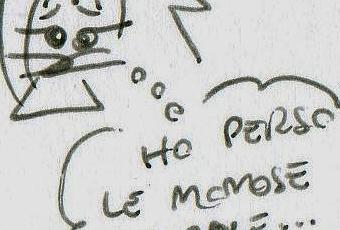 HO PERSO
LE MCMOSE